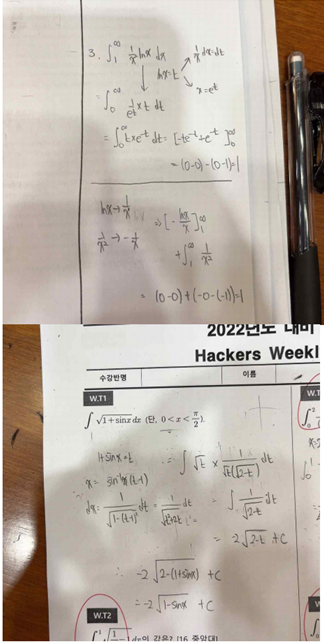 3. ∫₁^∞ 1/x² lnx dx    1/x dx = dt
lnx=t
x=e^t
= ∫₀^∞ 1/e^t × t dt
= ∫₀^∞ t×e^-t dt = [-te^-t - e^-t]₀^∞
= (0-0)-(0-1)=1
lnx → 1/x
1/x² → -1/x
⇒ [-lnx/x]₁^∞
+∫₁^∞ 1/x²
= (0-0)+(-0-(-1))=1
2022년도 대비
Hackers Weekl
수강반명 이름
W.T1
∫ √1+sinx dx (단, 0<x<π/2).
1+sinx=t
= ∫ √t × 1/√t(2-t) dt
x= sin⁻¹(t-1)
dx= 1/√1-(t-1)² dt = 1/√-t²+2t dt
= ∫ 1/√2-t dt
= -2√2-t +C
∴ -2√2-(1+sinx) +C
= -2√1-sinx +C
W.T2